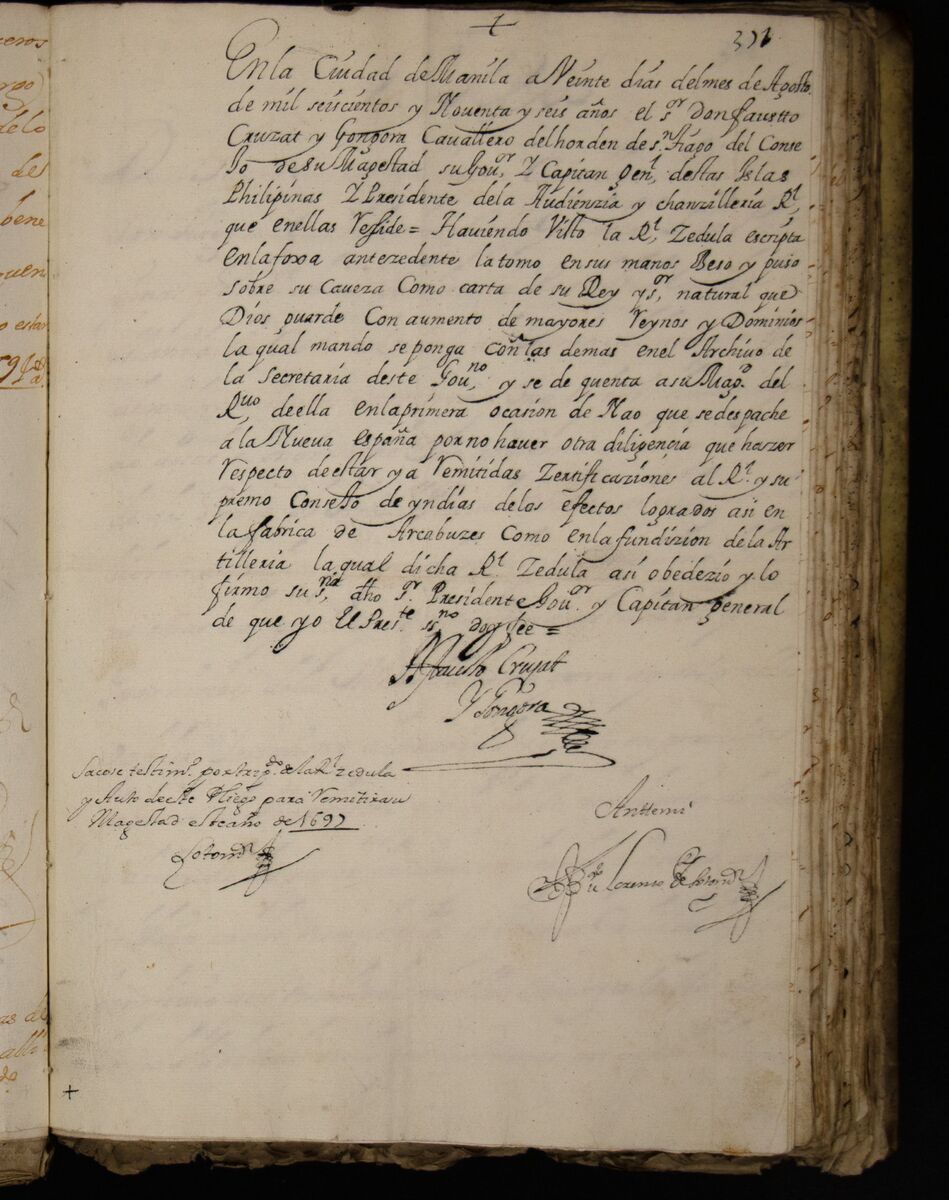 +
En la Ciudad de Manila a Veinte dias del mes de Agosto
de mil seiscientos y Noventa y seis años el s.or Don fausto
Cruzat y Gongora Cavallero del horden de s.n tiago del Conse
Jo de su Magestad su Gou.or, Y Capitan gen.l, destas Islas
Philipinas Y Presidente dela Audienzia y chanzilleria R.l,
que enellas Resside = Haviendo Visto la R.l, Zedula escripta
en la foxa antezedente la tomo en sus manos Beso y puso
sobre su Caveza Como carta de su Rey y s.or, natural que
Dios guarde Con aumento de mayores Reynos y Dominios
la qual mando se ponga con las demas en el Archivo de
la Secretaria deste Gou.no, y se de quenta a su Mag.d del
R.vo, de ella en la primera ocasion de Nao que se despache
a la Nueva españa por no haver otra diligencia que haszer
Respecto de estar ya Remitidas Zertificaziones al R.l y su
premo Consejo de yndias delos efectos logrados asi en
la fabrica de Arcabuzes Como en la fundizion de la Ar
tilleria la qual dicha R.l Zedula asi obedezio y lo
firmo su s.ria, dho s.or Presidente Gou.or y Capitan general
de que yo El Pres.te ss.no doy fee =
Fausto Cruzat
Y Gongora
Sacose testim.o por trip.do de la R.l zedula
y Auto de este Pliego para Remitir a su
Magestad este año de 1697
Anttemi